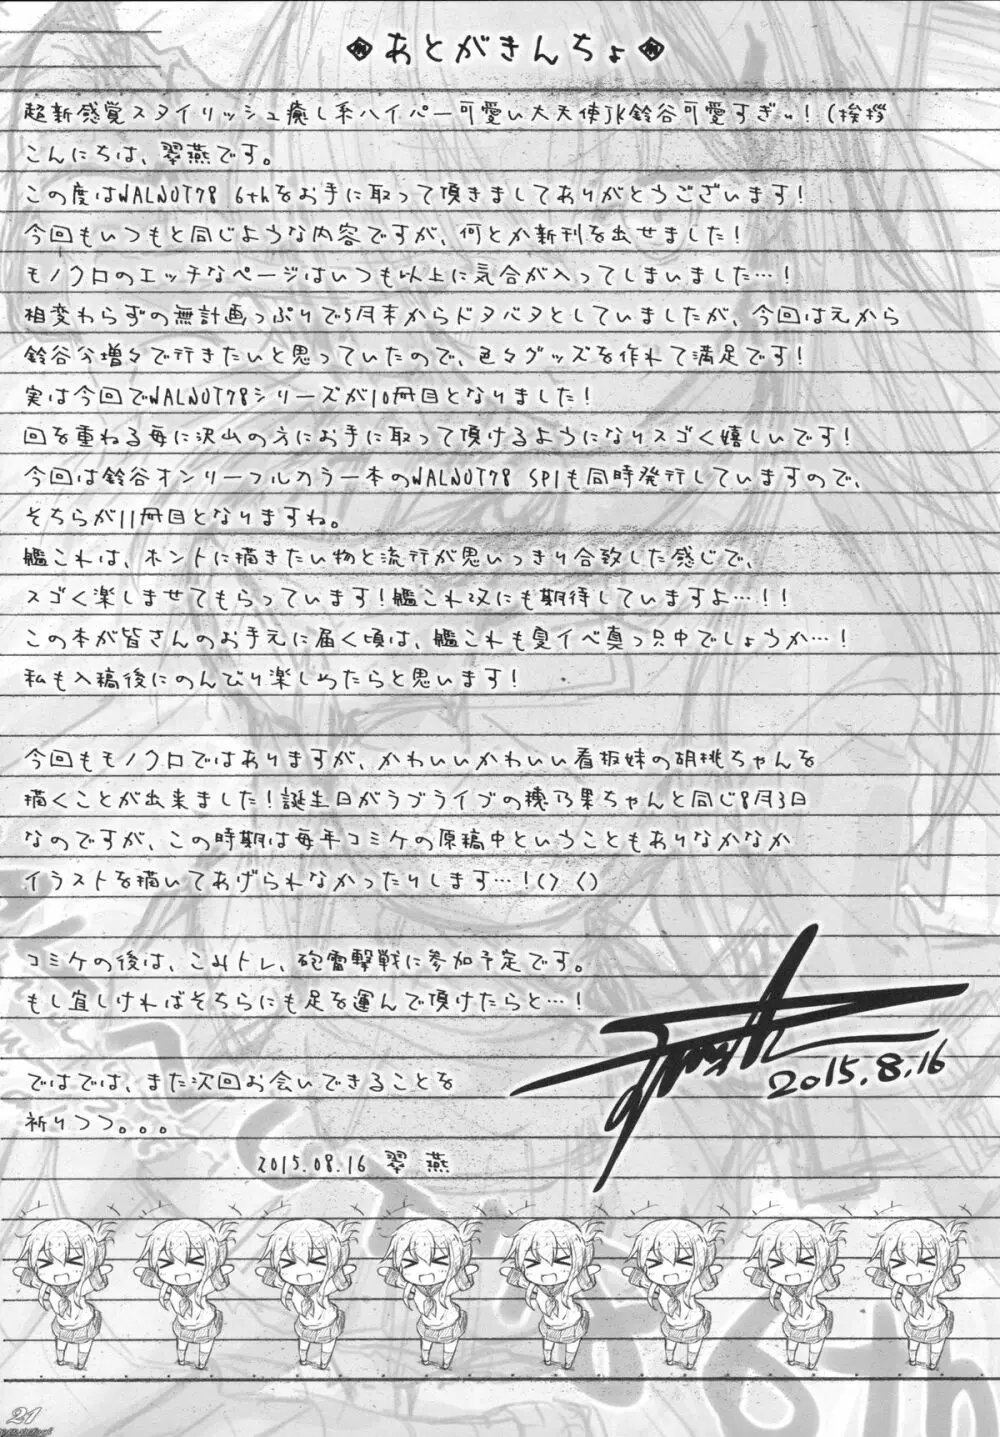 ◈あとがきんちょ◈
超新感覚スタイリッシュ癒し系ハイパー可愛い大天使JK鈴谷可愛すぎぃ！(挨拶
こんにちは、翠燕です。
この度はWALNOT78 6thをお手に取って頂きましてありがとうございます！
今回もいつもと同じような内容ですが、何とか新刊を出せました！
モノクロのエッチなページはいつも以上に気合が入ってしまいました…！
相変わらずの無計画っぷりで5月末からドタバタとしていましたが、今回は元から
鈴谷分増々で行きたいと思っていたので、色々グッズを作れて満足です！
実は今回でWALNOT78シリーズが10冊目となりました！
回を重ねる毎に沢山の方にお手に取って頂けるようになりスゴく嬉しいです！
今回は鈴谷オンリーフルカラー本のWALNOT78 SP1も同時発行していますので、
そちらが11冊目となりますね。
艦これは、ホントに描きたい物と流行が思いっきり合致した感じで、
スゴく楽しませてもらっています！艦これ改にも期待していますよ…！！
この本が皆さんのお手元に届く頃は、艦これも夏イベ真っ只中でしょうか…！
私も入稿後にのんびり楽しめたらと思います！
今回もモノクロではありますが、かわいいかわいい看板妹の胡桃ちゃんを
描くことが出来ました！誕生日がラブライブの穂乃果ちゃんと同じ8月3日
なのですが、この時期は毎年コミケの原稿中ということもありなかなか
イラストを描いてあげられなかったりします…！() ()
コミケの後は、こみトレ、砲雷撃戦に参加予定です。
もし宜しければそちらにも足を運んで頂けたらと…！
2015.8.16
ではでは、また次回お会いできることを
祈りつつ。。。
2015.08.16 翠燕
21